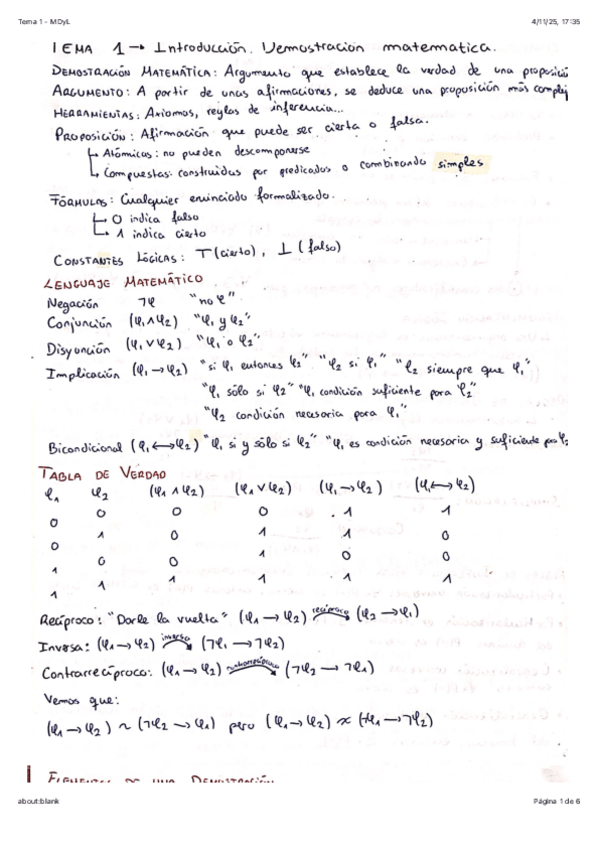 Tema 1 - MDyL 4/11/25, 17:35
TEMA 1 → Introducción. Demostración matemática.
DEMOSTRACIÓN MATEMÁTICA: Argumento que establece la verdad de una proposició
ARGUMENTO: A partir de unas afirmaciones, se deduce una proposición más complej
HERRAMIENTAS: Axiomas, reglas de inferencia...
PROPOSICIÓN: Afirmación que puede ser cierta o falsa.
↳ Atómicas: no pueden descomponerse
↳ Compuestas: construidas por predicados o combinando simples
FÓRMULAS: Cualquier enunciado formalizado.
↳ 0 indica falso
↳ 1 indica cierto
CONSTANTES LÓGICAS: ⊤ (cierto), ⊥ (falso)
LENGUAJE MATEMÁTICO
Negación ¬φ "no φ"
Conjunción (φ₁∧φ₂) "φ₁ y φ₂"
Disyunción (φ₁∨φ₂) "φ₁ o φ₂"
Implicación (φ₁→φ₂) "si φ₁ entonces φ₂" "φ₂ si φ₁" "φ₂ siempre que φ₁"
"φ₁ sólo si φ₂" "φ₁ condición suficiente para φ₂"
"φ₂ condición necesaria para φ₁"
Bicondicional (φ₁↔φ₂) "φ₁ si y sólo si φ₂" "φ₁ es condición necesaria y suficiente para φ₂
TABLA DE VERDAD
φ₁ φ₂ (φ₁∧φ₂) (φ₁∨φ₂) (φ₁→φ₂) (φ₁↔φ₂)
0 0 0 0 1 1
0 1 0 1 1 0
1 0 0 1 0 0
1 1 1 1 1 1
Recíproco: "Darle la vuelta" (φ₁→φ₂) recíproco (φ₂→φ₁)
Inversa: (φ₁→φ₂) inverso (¬φ₁→¬φ₂)
Contrarrecíproco: (φ₁→φ₂) contrarrecíproco (¬φ₂→¬φ₁)
Vemos que:
(φ₁→φ₂) ~ (¬φ₂→¬φ₁) pero (φ₁→φ₂) ≁ (¬φ₁→¬φ₂)
about:blank Página 1 de 6